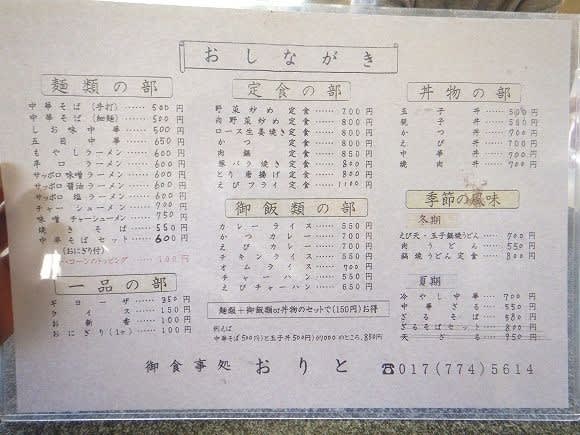 おしながき
麺類の部
中華そば(手打)……500円
中華そば(細麺)……500円
しお味中華……500円
五目中華……650円
もやしラーメン……600円
辛口ラーメン……600円
サッポロ味噌ラーメン……600円
サッポロ醤油ラーメン……600円
サッポロ塩ラーメン……600円
チャーシューメン……700円
味噌チャーシューメン……750円
焼きそば……550円
中華そばセット……600円
(おにぎり付)
コーンのトッピング……100円
一品の部
ギョーザ……350円
ライス……150円
お新香……100円
おにぎり(1ヶ)……100円
定食の部
野菜炒め定食……700円
肉野菜炒め定食……800円
ロース生姜焼き定食……800円
かつ定食……800円
肉鍋定食……850円
豚バラ焼き定食……800円
とり唐揚げ定食……800円
えびフライ定食……1100円
御飯類の部
カレーライス……550円
かつカレー……700円
えびカレー……700円
チキンライス……550円
オムライス……700円
チャーハン……550円
えびチャーハン……650円
麺類+御飯類or丼物のセットで(150円)お得
例えば
中華そば500円)と玉子丼500円)が1000のところ、850円
丼物の部
玉子丼……500円
親子丼……550円
かつ丼……700円
えび丼……700円
中華丼……700円
焼肉丼……700円
季節の風味
冬期
えび天・玉子鍋焼うどん……700円
肉うどん……550円
鍋焼うどん定食……800円
夏期
冷やし中華……700円
中華ざる……550円
ざるそば……580円
ざるそばセット……800円
天ざる……950円
御食事処 おりと ☎017(774)5614